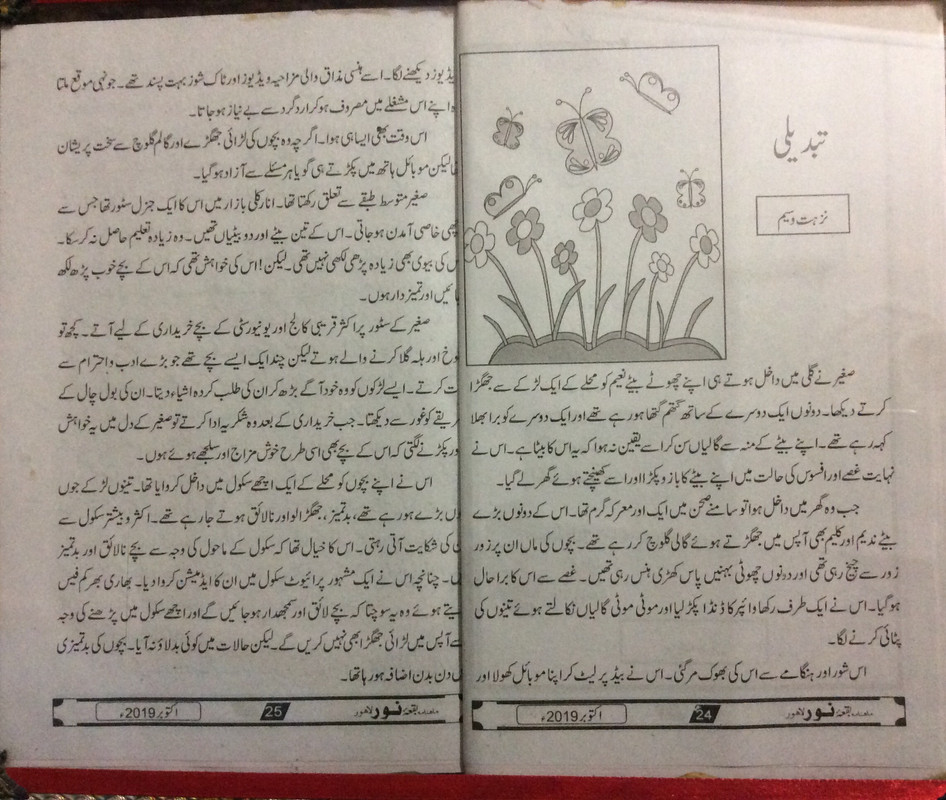 تبدیلی
نزہت وسیم
صغیر نے گلی میں داخل ہوتے ہی اپنے چھوٹے بیٹے نعیم کو محلے کے ایک لڑکے سے جھگڑا
کرتے دیکھا۔ دونوں ایک دوسرے کے ساتھ گتھم گتھا ہو رہے تھے اور ایک دوسرے کو برا بھلا
کہہ رہے تھے۔ اپنے بیٹے کے منہ سے گالیاں سن کر اسے یقین نہ ہوا کہ یہ اس کا بیٹا ہے۔ اس نے
نہایت غصے اور افسوس کی حالت میں اپنے بیٹے کا بازو پکڑا اور اسے کھینچتے ہوئے گھر لے گیا۔
جب وہ گھر میں داخل ہوا تو سامنے صحن میں ایک اور معرکہ گرم تھا۔ اس کے دونوں بڑے
بیٹے ندیم اور کلیم بھی آپس میں جھگڑتے ہوئے گالی گلوچ کر رہے تھے۔ بچوں کی ماں ان پر زور
زور سے چیخ رہی تھی اور دونوں چھوٹی بہنیں پاس کھڑی ہنس رہی تھیں۔ غصے سے اس کا برا حال
ہو گیا۔ اس نے ایک طرف رکھا وائپر کا ڈنڈا پکڑ لیا اور موٹی موٹی گالیاں نکالتے ہوئے تینوں کی
پٹائی کرنے لگا۔
اس شور اور ہنگامے سے اس کی بھوک مر گئی۔ اس نے بیڈ پر لیٹ کر اپنا موبائل کھولا اور
ماہنامہ بقعۂ نور لاہور 24 اکتوبر 2019ء
یڈیوز دیکھنے لگا۔ اسے ہنسی مذاق والی مزاحیہ ویڈیوز اور ٹاک شوز بہت پسند تھے۔ جونہی موقع ملتا
ہ اپنے اس مشغلے میں مصروف ہو کر ارد گرد سے بے نیاز ہو جاتا۔
اس وقت بھی ایسا ہی ہوا۔ اگرچہ وہ بچوں کی لڑائی جھگڑے اور گالم گلوچ سے سخت پریشان
لیکن موبائل ہاتھ میں پکڑتے ہی گویا ہر مسئلے سے آزاد ہو گیا۔
صغیر متوسط طبقے سے تعلق رکھتا تھا۔ انار کلی بازار میں اس کا ایک جنرل سٹور تھا جس سے
چھی خاصی آمدن ہو جاتی۔ اس کے تین بیٹے اور دو بیٹیاں تھیں۔ وہ زیادہ تعلیم حاصل نہ کر سکا۔
س کی بیوی بھی زیادہ پڑھی لکھی نہیں تھی۔ لیکن! اس کی خواہش تھی کہ اس کے بچے خوب پڑھ لکھ
ائیں اور تمیز دار ہوں۔
صغیر کے سٹور پر اکثر قریبی کالج اور یونیورسٹی کے بچے خریداری کے لیے آتے۔ کچھ تو
وخ اور ہلہ گلا کرنے والے ہوتے لیکن چند ایک ایسے بچے تھے جو بڑے ادب و احترام سے
ت کرتے۔ ایسے لڑکوں کو وہ خود آگے بڑھ کر ان کی طلب کردہ اشیاء دیتا۔ ان کی بول چال کے
ریقے کو غور سے دیکھتا۔ جب خریداری کے بعد وہ شکریہ ادا کرتے تو صغیر کے دل میں یہ خواہش
ور پکڑنے لگتی کہ اس کے بچے بھی اسی طرح خوش مزاج اور سلجھے ہوئے ہوں۔
اس نے اپنے بچوں کو محلے کے ایک اچھے سکول میں داخل کروایا تھا۔ تینوں لڑکے جوں
وں بڑے ہو رہے تھے، بدتمیز، جھگڑالو اور نالائق ہوتے جا رہے تھے۔ اکثر و بیشتر سکول سے
ی کی شکایت آتی رہتی۔ اس کا خیال تھا کہ سکول کے ماحول کی وجہ سے بچے نالائق اور بدتمیز
ں۔ چنانچہ اس نے ایک مشہور پرائیوٹ سکول میں ان کا ایڈمیشن کروا دیا۔ بھاری بھر کم فیس
یتے ہوئے وہ یہ سوچتا کہ بچے لائق اور سمجھدار ہو جائیں گے اور اچھے سکول میں پڑھنے کی وجہ
سے آپس میں لڑائی جھگڑا بھی نہیں کریں گے۔ لیکن حالات میں کوئی بدلاؤ نہ آیا۔ بچوں کی بدتمیزی
ں دن بدن اضافہ ہو رہا تھا۔
ماہنامہ بقعۂ نور لاہور 25 اکتوبر 2019ء